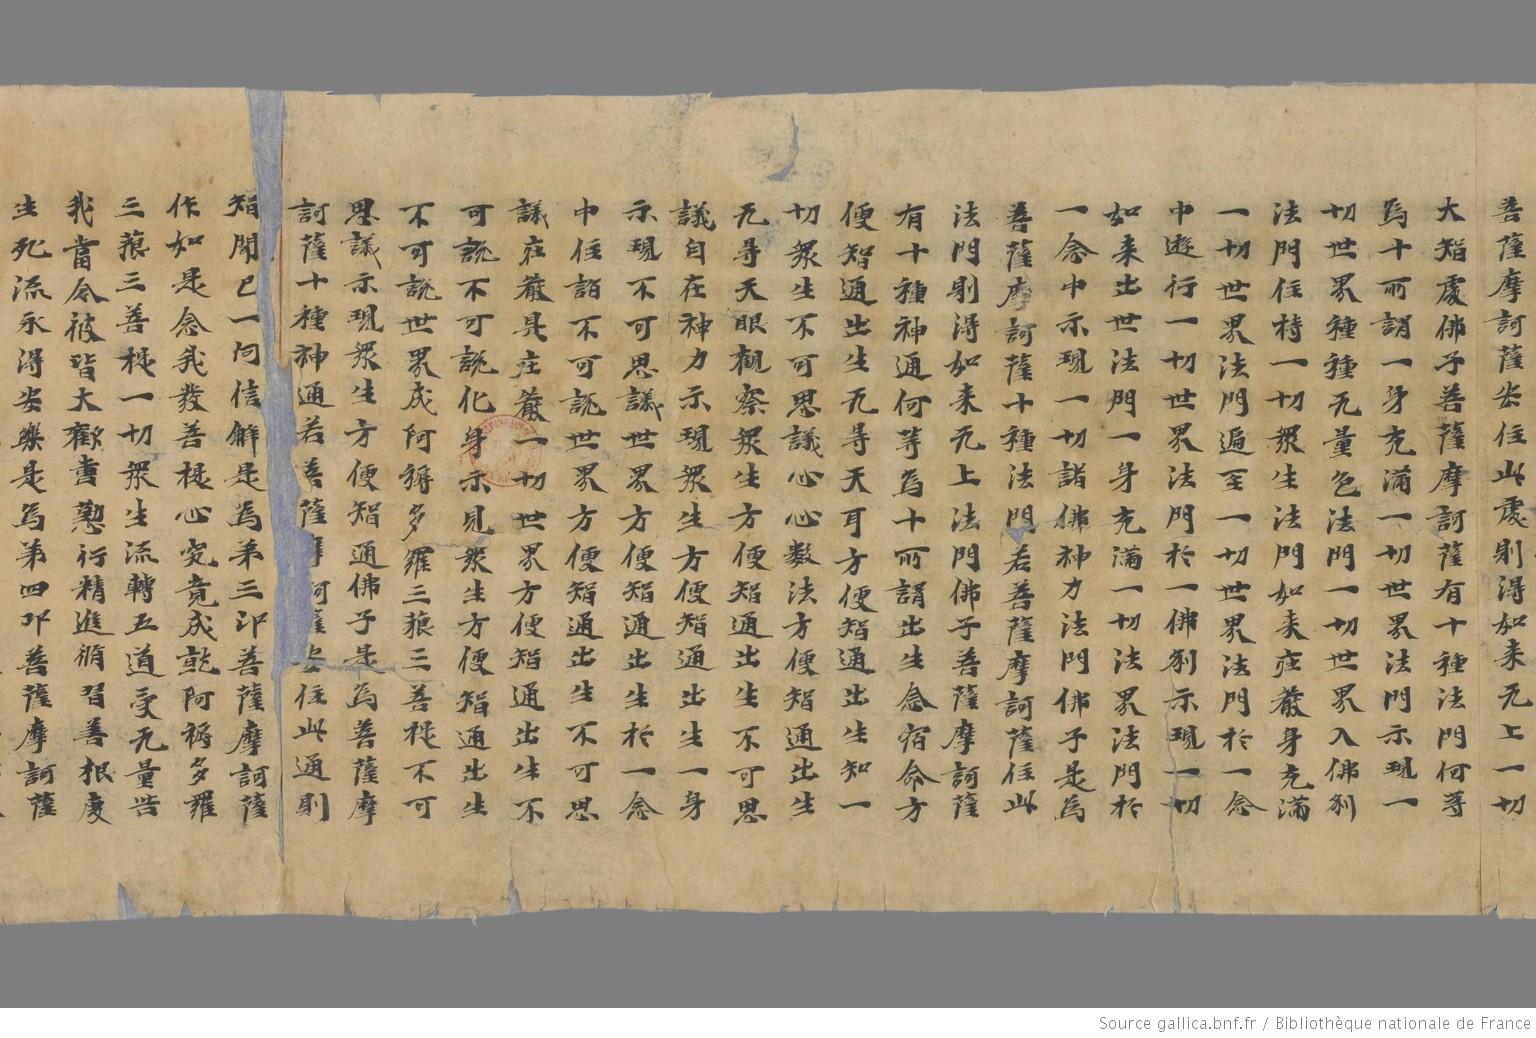 菩薩摩訶薩安住此處則得如来无上一切
大智處佛子菩薩摩訶薩有十種法門何等
為十所謂一身充滿一切世界法門示現一
切世界種種无量色法門一切世界入佛刹
法門任持一切衆生法門如来莊嚴身充滿
一切世界法門遍至一切世界法門於一念
中遊行一切世界法門於一佛刹示現一切
如来出世法門一身充滿一切法界法門於
一念中示現一切諸佛神力法門佛子是為
菩薩摩訶薩十種法門若菩薩摩訶薩住此
法門則得如来无上法門佛子菩薩摩訶薩
有十種神通何等為十所謂出生念宿命方
便智通出生无㝵天耳方便智通出生知一
切衆生不可思議心心數法方便智通出生
无㝵天眼觀察衆生方便智通出生不可思
議自在神力示現衆生方便智通出生一身
示現不可思議世界方便智通出生於一念
中住詣不可說世界方便智通出生不可思
議莊嚴具莊嚴一切世界方便智通出生不
可說不可說化身示見衆生方便智通出生
不可說世界成阿耨多羅三藐三菩提不可
思議示現衆生方便智通佛子是為菩薩摩
訶薩十種神通若菩薩摩訶薩安住此通則
智聞已一向信解是為第三印菩薩摩訶薩
作如是念我發菩提心究竟成就阿耨多羅
三藐三菩提一切衆生流轉五道受无量苦
我當令彼皆大歡喜懃行精進脩習善根度
生死流永得安樂是為第四印菩薩摩訶薩
Source gallica.bnf.fr / Bibliothèque nationale de France